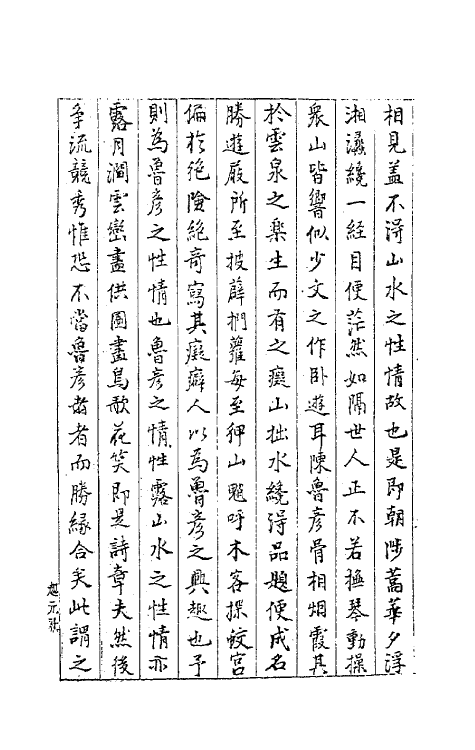 相見蓋不得山水之性情故也是即朝陟嵩華夕浮
湘灕纔一經目便茫然如隔世人正不若撫琴動操
衆山皆響似少文之作卧遊耳陳魯彦骨相烟霞其
於雲泉之樂生而有之癡山拙水纔得品題便成名
勝遊屐所至披薜捫蘿每至狎山魈呼木客探蛟宮
偏於絶險絶奇寫其癡癖人以為魯彦之興趣也予
則為魯彦之性情也魯彦之情性露山水之性情亦
露月澗雲巒盡供圖畫鳥歌花笑即是詩章夫然後
爭流競秀惟恐不當魯彦者而勝縁合矣此謂之